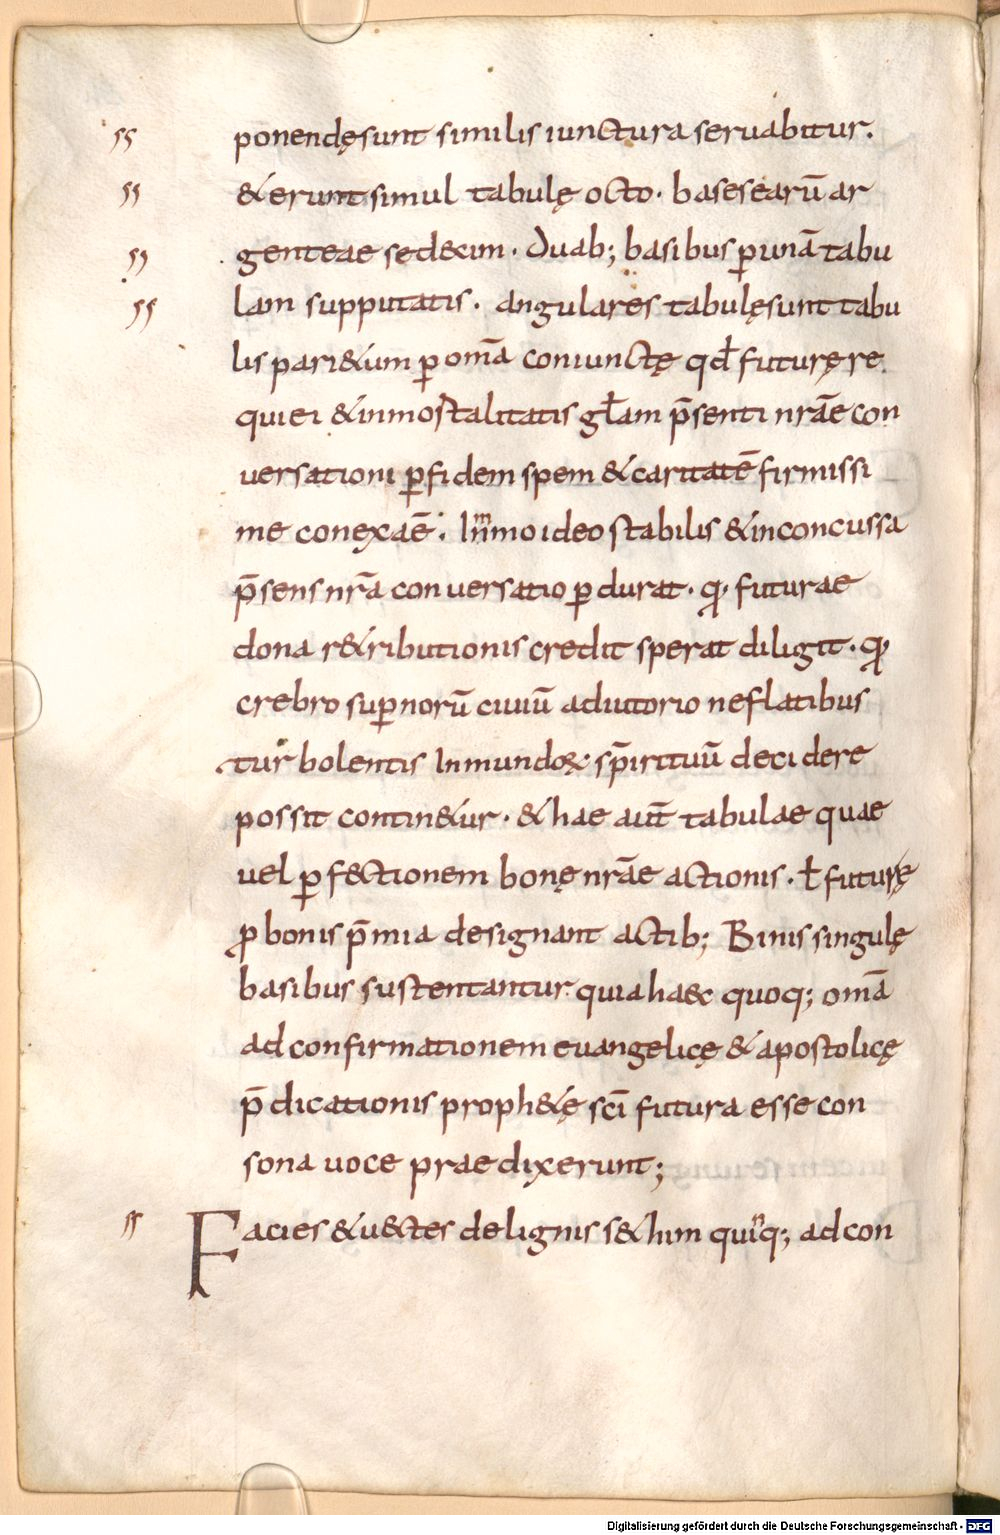 ponendę sunt similis iunctura seruabitur.
& erunt simul tabulę octo. bases earū ar
genteae sedecim. Duab; basibus ꝑ unā tabu
lam supputatis. angulares tabulę sunt tabu
lis pari&um ꝑ omā coniunctę qđ futurę re
quiei & inmortalitatis gƚam p̄senti nrāe con
versationi ꝑ fidem spem & caritatē firmissi
me conexa ē. Immo ideo stabilis & inconcussa
p̄sens nrā conuersatio ꝑdurat. ꝙ futurae
dona r&ributionis credit sperat diligit. ꝙ
crebro suꝑnorū ciuiū adiutorio ne flatibus
turbolentis Inmundoꝝ sp̄irituū decidere
possit contin&ur. & hae aut̄ tabulae quae
uel ꝑfectionem bonę nrāe actionis. ƚ futurę
ꝓ bonis p̄mia designant actib; Binis singulę
basibus sustentantur quia haec quoq; omā
ad confirmationem euangelicę & apostolicę
p̄dicationis proph&ę scī futura esse con
sona uoce praedixerunt;
Facies & uectes de lignis s&him quinq; ad con
Digitalisierung gefördert durch die Deutsche Forschungsgemeinschaft - DFG